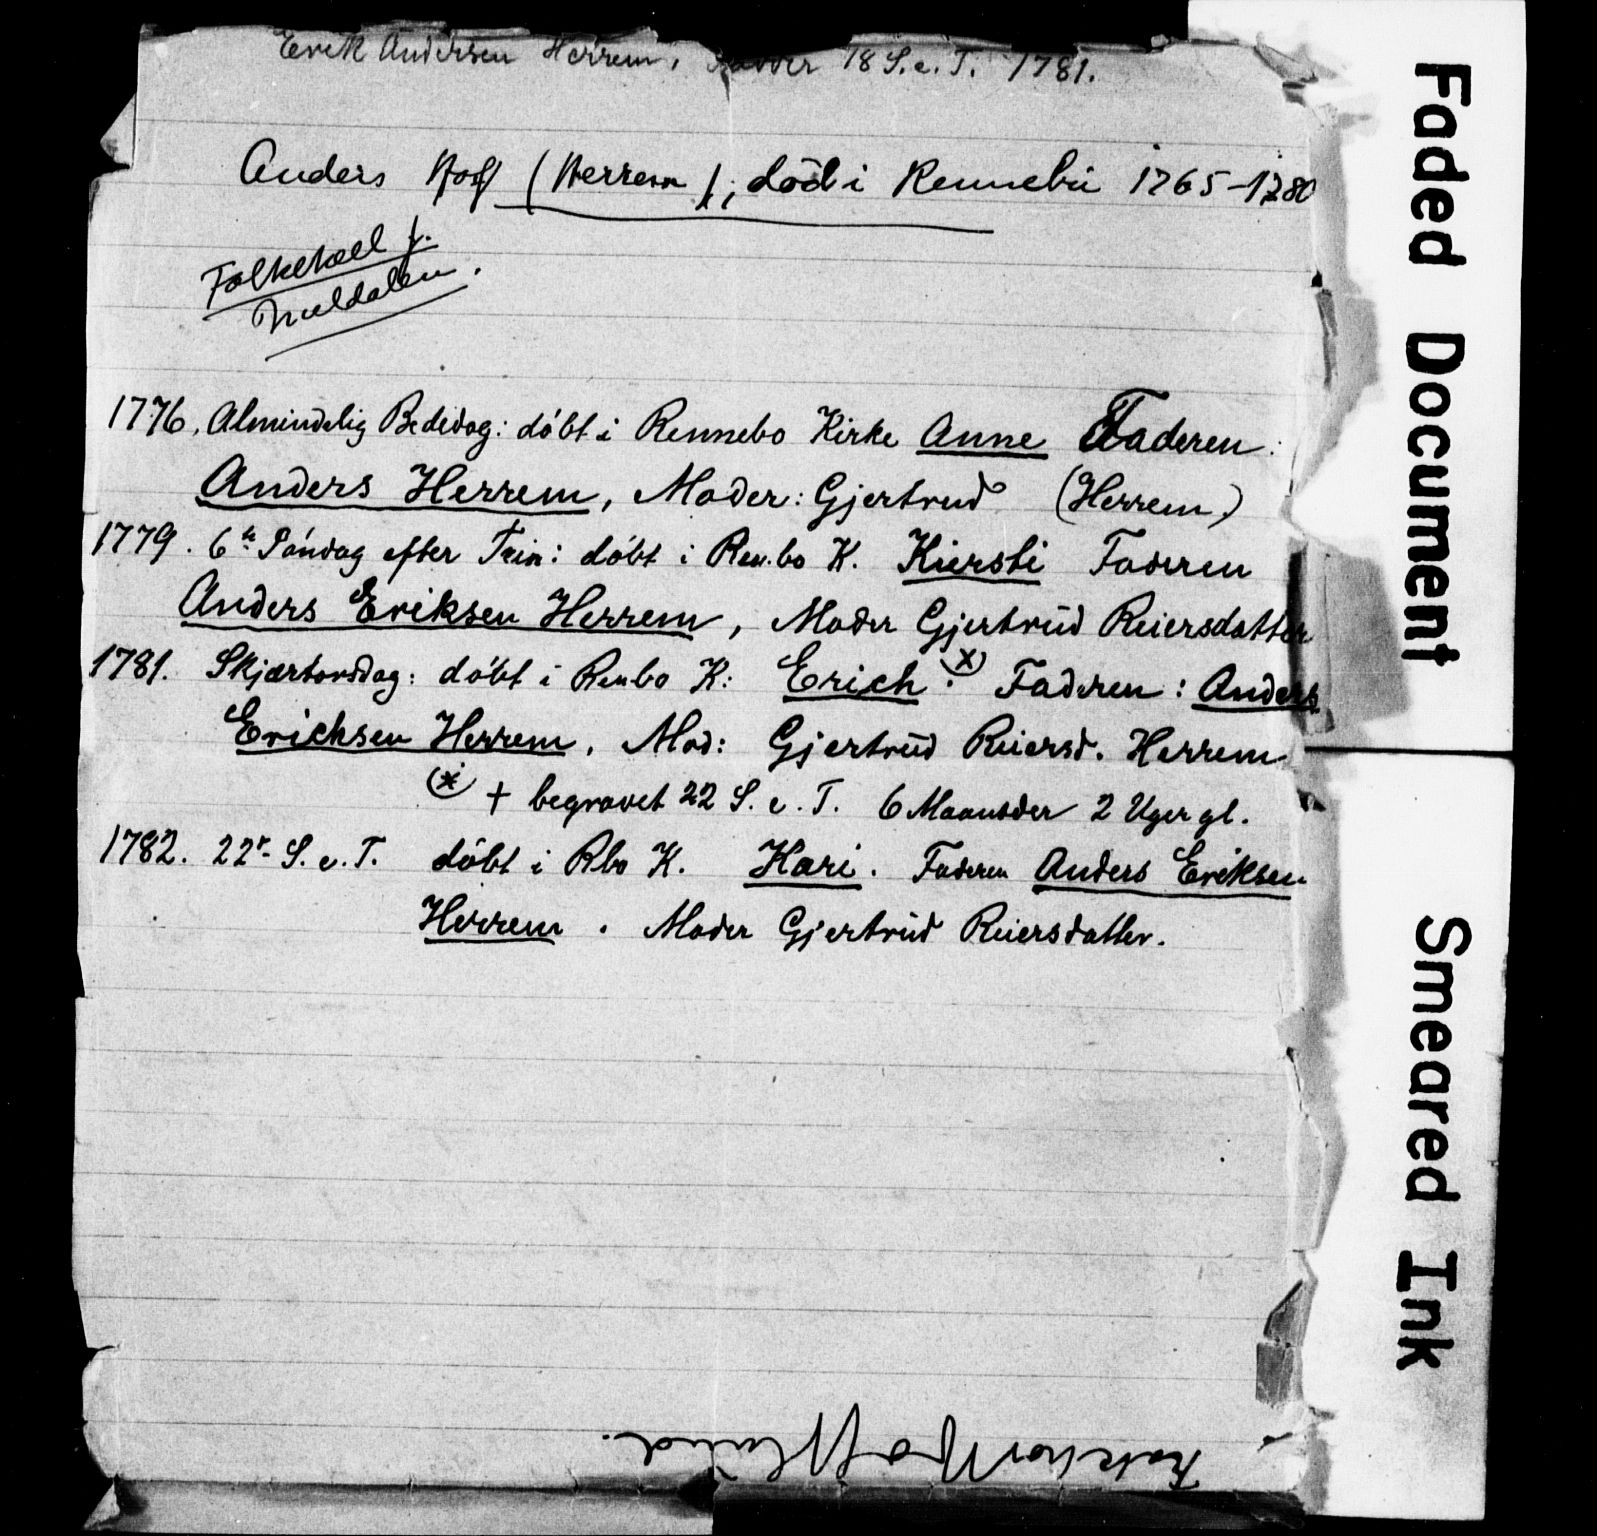 Erik Andersen Herrem, Fadder 18 S. e. T. 1781.
Anders Hoff (Herrem), död i Rennebu 1765-1780
Folketæll f.
Meldalen.
1776. Almindelig Bededag: döbt i Rennebo Kirke Anne Faderen:
Anders Herrem, Moder: Gjertrud (Herrem)
1779. 6te Söndag efter Trin: döbt i Ren.bo K. Kiersti Faderen
Anders Eriksen Herrem, Moder Gjertrud Reiersdatter
1781. Skjærtorsdag: döbt i Renbo K: Erich. (x) Faderen: Anders
Erichsen Herrem, Mod: Gjertrud Reiersd. Herrem
(x) + begravet 22 S. e. T. 6 Maaneder 2 Uger gl.
1782. 22r S. e. T. döbt i Rbo K. Kari. Faderen Anders Eriksen
Herrem. Moder Gjertrud Reiersdatter.
Faded Document
Smeared Ink